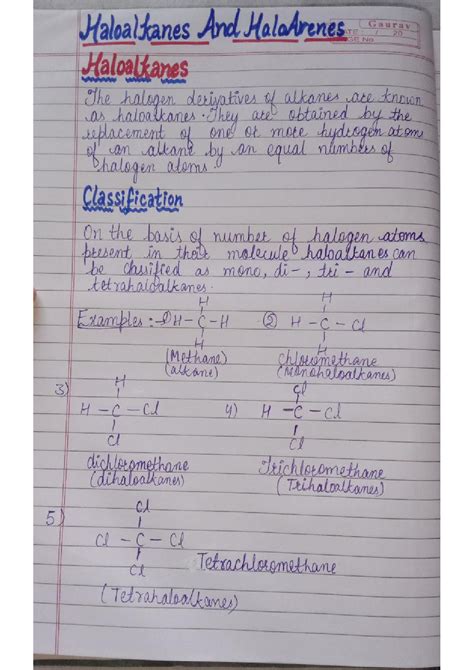 Gaurav
DATE / / 20
PAGE No.
Haloalkanes And HaloArenes
Haloalkanes
The halogen derivatives of alkanes are known
as haloalkanes. They are obtained by the
replacement of one or more hydrogen atom
of an alkane by an equal numbers of
halogen atoms.
Classification
On the basis of number of halogen atoms
present in their molecule haloalkanes can
be classified as mono, di-, tri- and
tetrahaloalkanes.
H H
Examples :- 1) H-C-H 2) H-C-Cl
H H
(Methane) chloromethane
(alkane) (Monohaloalkanes)
3) H Cl
H-C-Cl 4) H-C-Cl
Cl Cl
dichloromethane Trichloromethane
(dihaloalkanes) (Trihaloalkanes)
5) Cl
Cl-C-Cl
Cl Tetrachloromethane
(Tetrahaloalkanes)